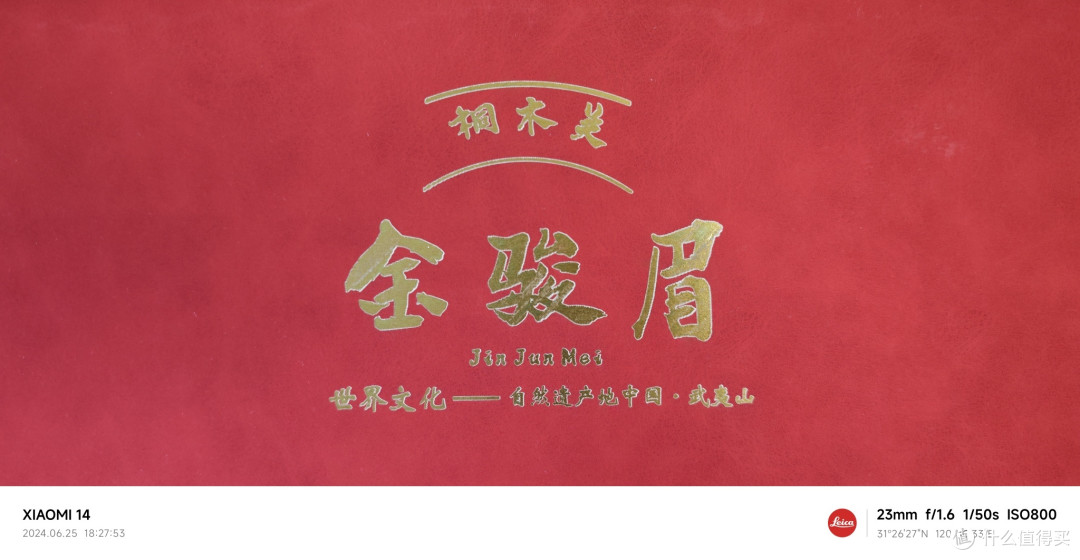 桐木美
金骏眉
Jin Jun Mei
世界文化——自然遗产地中国·武夷山
XIAOMI 14
2024.06.25 18:27:53
Leica
23mm f/1.6 1/50s ISO800
31°26'27"N
什么值得买